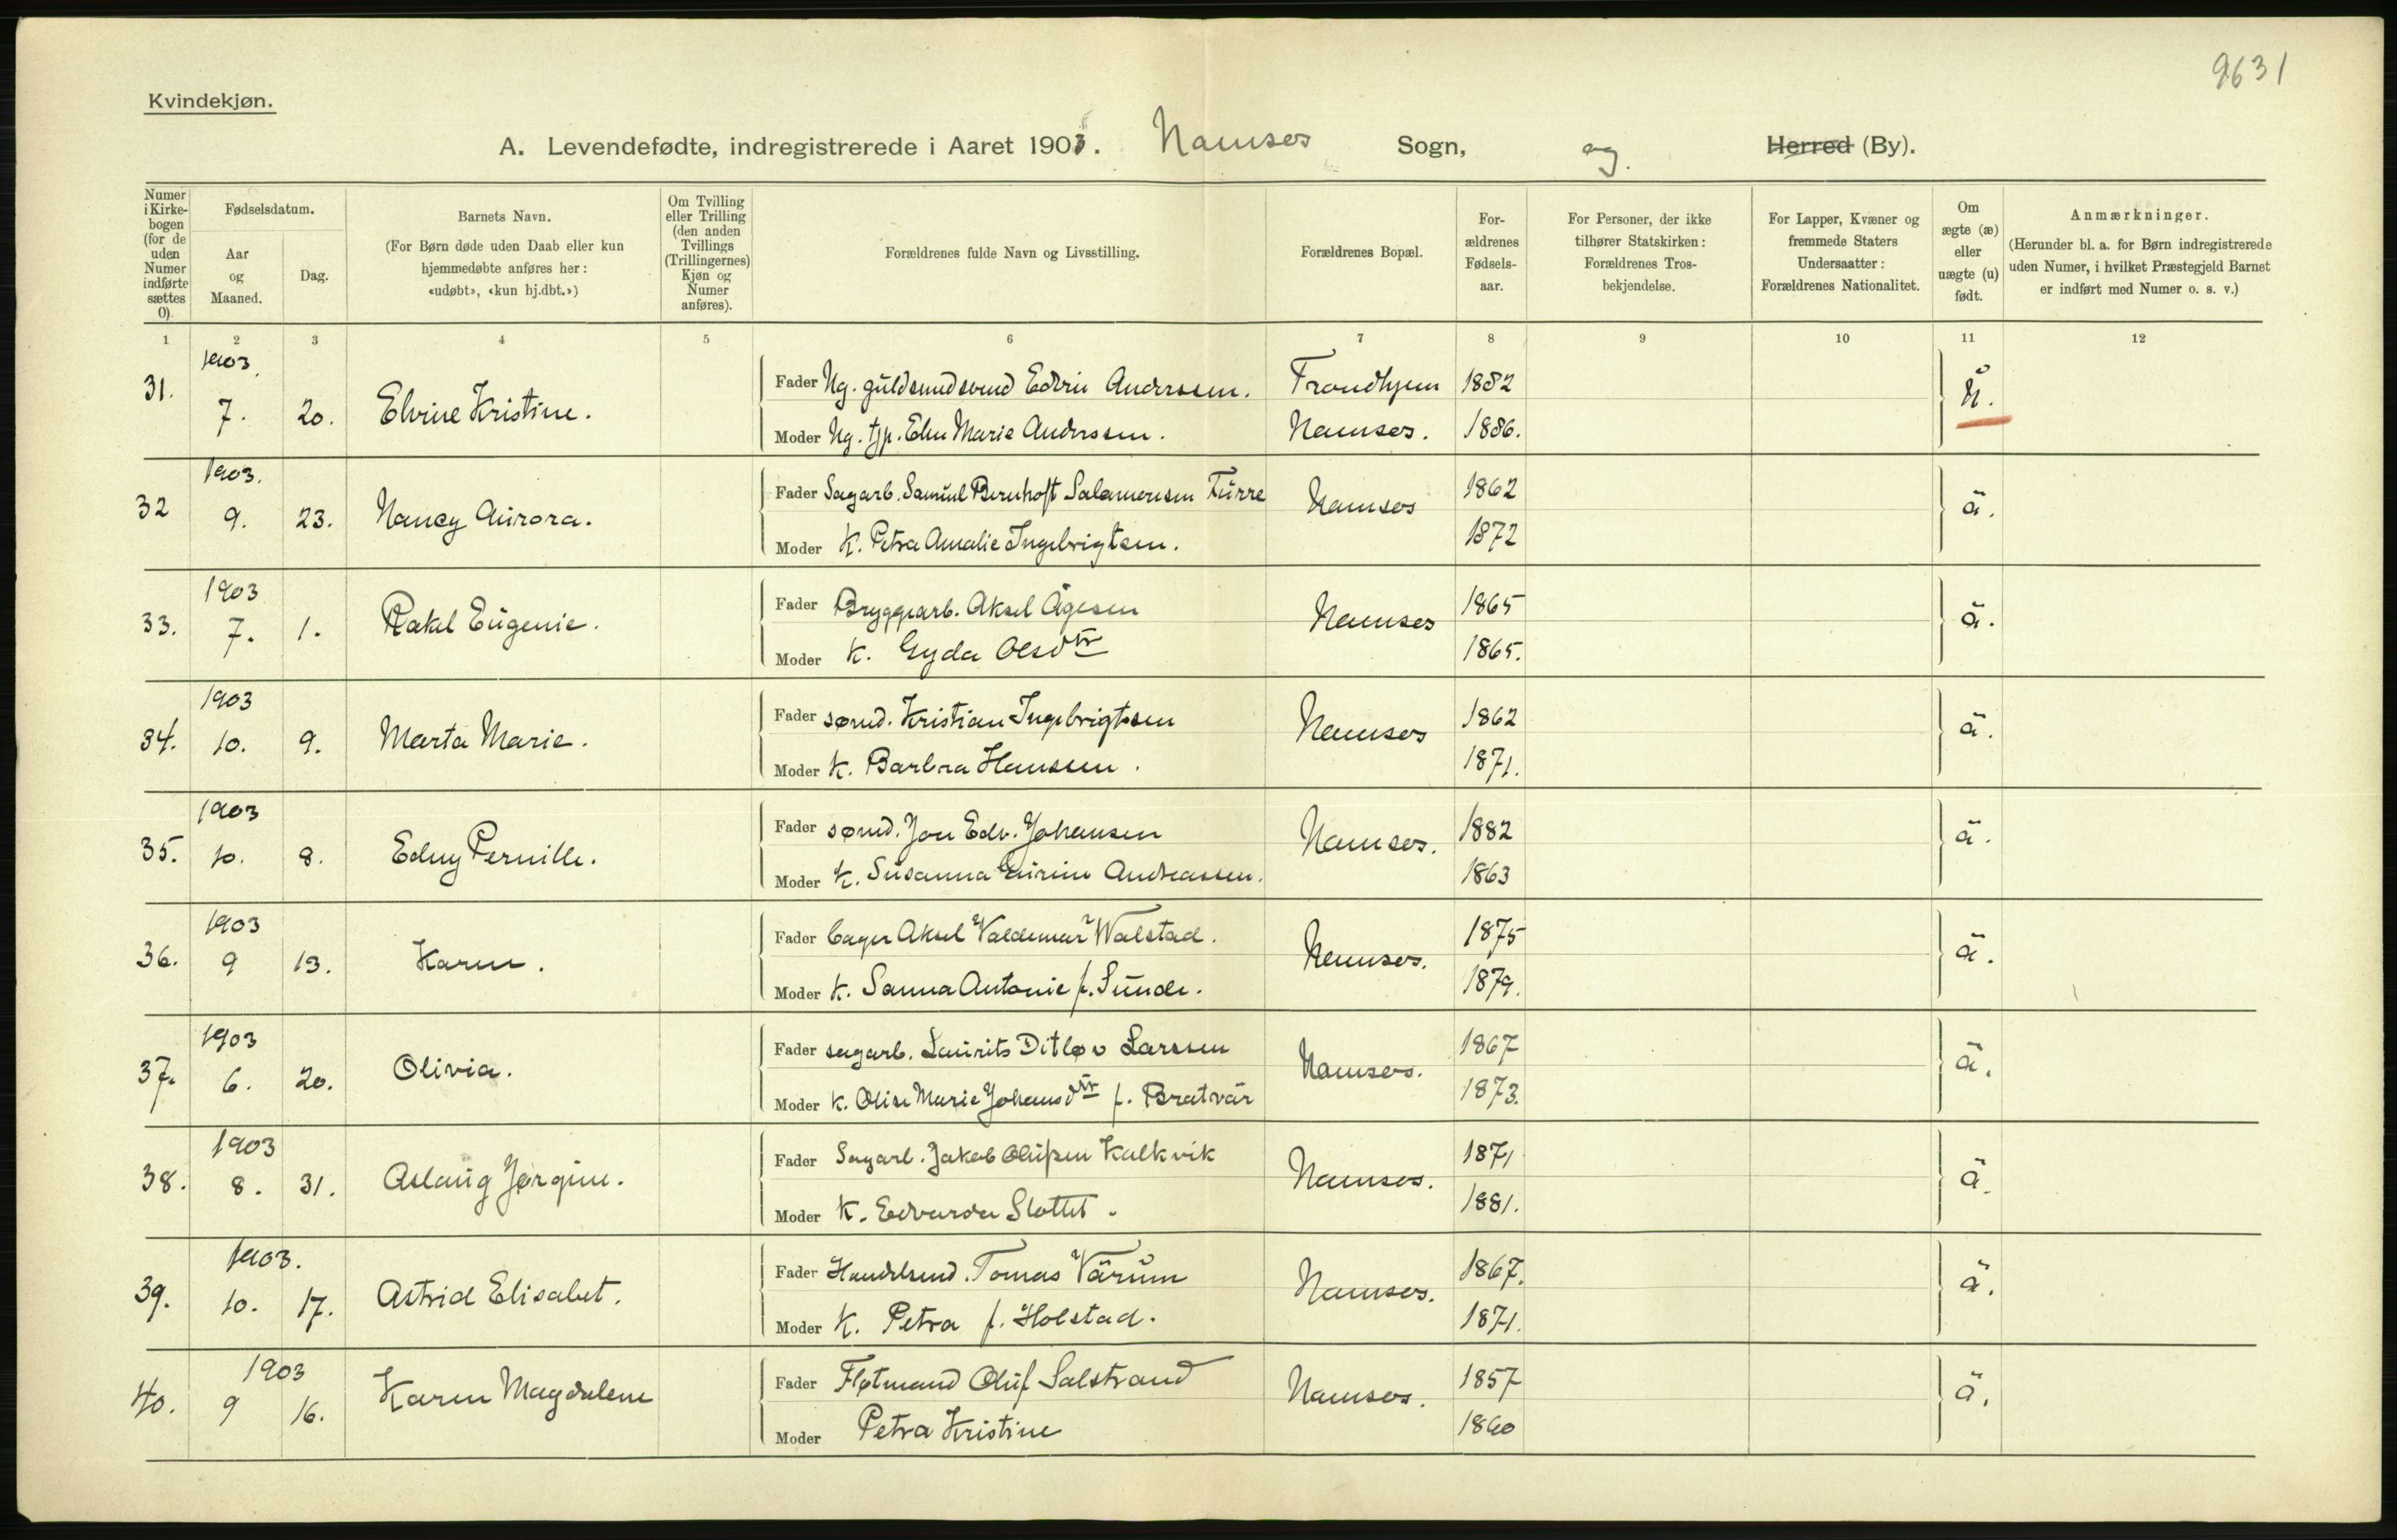 9631
Kvindekjøn.
A. Levendefødte, indregistrerede i Aaret 1903. Namsos Sogn, og Herred (By).
Numer i Kirkebogen (for de uden Numer indførte sættes 0).
Fødselsdatum.
Aar og Maaned.
Dag.
Barnets Navn.
(For Børn døde uden Daab eller kun hjemmedøbte anføres her: «udøbt», «kun hj.dbt.»)
Om Tvilling eller Trilling (den anden Tvillings (Trillingernes) Kjøn og Numer anføres).
Forældrenes fulde Navn og Livsstilling.
Forældrenes Bopæl.
Forældrenes Fødselsaar.
For Personer, der ikke tilhører Statskirken: Forældrenes Trosbekjendelse.
For Lapper, Kvæner og fremmede Staters Undersaatter: Forældrenes Nationalitet.
Om ægte (æ) eller uægte (u) født.
Anmærkninger.
(Herunder bl. a. for Børn indregistrerede uden Numer, i hvilket Præstegjeld Barnet er indført med Numer o. s. v.)
1 2 3 4 5 6 7 8 9 10 11 12
31. 1903. 7. 20. Elvine Kristine.
Fader Ug. guldsmedsvend Edvin Anderssen. Trondhjem 1882 ŭ.
Moder Ug. tjp. Elen Marie Anderssen. Namsos. 1886.
32 1903. 9. 23. Nancy Aŭrora.
Fader Sagarb. Samŭel Bernhoft Salamonsen Fŭrre Namsos 1862 ä.
Moder K. Petra Amalie Ingebrigtsen. 1872
33. 1903 7. 1. Rakel Eŭgenie.
Fader Bryggearb. Aksel Ågesen Namsos 1865 ä.
Moder K. Gyda Olsdtr 1865.
34. 1903 10. 9. Marta Marie.
Fader sømd. Kristian Ingebrigtsen Namsos 1862 ä.
Moder K. Barbra Hansen. 1871.
35. 1903 10. 8. Edny Pernille.
Fader sømd. Jon Edv. Johansen Namsos. 1882 ä.
Moder K. Sŭsanna Andreassen. 1863
36. 1903 9 13. Karen.
Fader Bager Aksel Valdemar Walstad. Namsos. 1875 ä.
Moder K. Sanna Antonie f. Sŭnde. 1879.
37. 1903 6. 20. Olivia.
Fader sagarb. Laŭrits Ditløv Larssen Namsos. 1867 ä.
Moder K. Olise Marie Johansdtr f. Bratvär 1873.
38. 1903 8. 31. Aslaŭg Jørgine.
Fader Sagarb. Jakob Olŭfsen Kalkvik Namsos. 1871 ä.
Moder K. Edvarda Slottet. 1881.
39. 1903. 10. 17. Astrid Elisabet.
Fader Handelsmd. Tomas Värŭm Namsos. 1867. ä.
Moder K. Petra f. Holstad. 1871.
40. 1903 9 16. Karen Magdalene
Fader Fløtmand Olŭf Salstrand Namsos. 1857 ä.
Moder Petra Kristine 1860